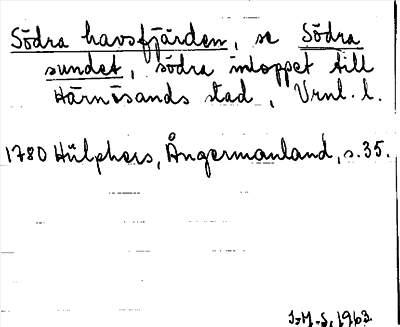 Södra havsfjärden, se Södra
sundet, södra inloppet till
Härnösands stad, Vrnl. l.
1780 Hülphers, Ångermanland, s. 35.
1963